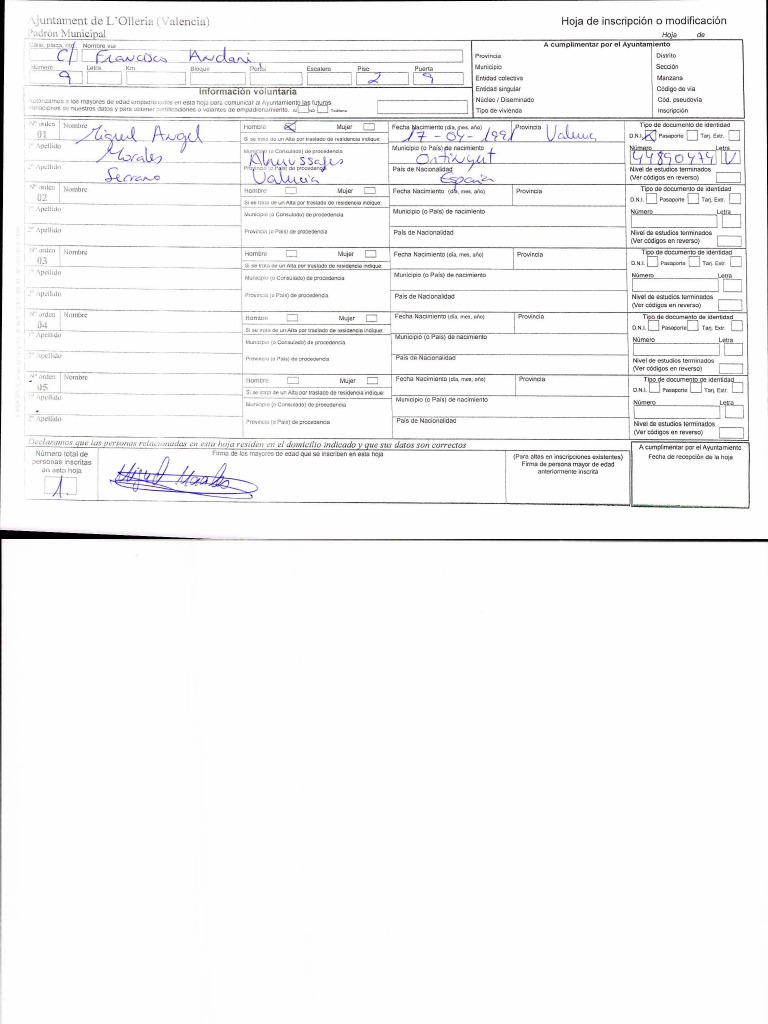 Ajuntament de L'Olleria (Valencia)
Hoja de inscripción o modificación
Padrón Municipal
Hoja de
Calle, plaza, etc. Nombre vía
C/ Francisco Andani,
Número Letra Km Bloque Portal Escalera Piso Puerta
9 2 9
A cumplimentar por el Ayuntamiento
Provincia Distrito
Municipio Sección
Entidad colectiva Manzana
Entidad singular Código de vía
Núcleo / Diseminado Cód. pseudovía
Tipo de vivienda Inscripción
Información voluntaria
Autorizamos a los mayores de edad empadronados en esta hoja para comunicar al Ayuntamiento las futuras
variaciones de nuestros datos y para obtener certificaciones o volantes de empadronamiento. SI NO Teléfono
Nº orden Nombre Hombre Mujer Fecha Nacimiento (día, mes, año) Provincia Tipo de documento de identidad
01 Miguel Angel 17-04-1991 D.N.I. Pasaporte Tarj. Extr.
1º Apellido Si se trata de un Alta por traslado de residencia indique:
Morales Municipio (o Consulado) de procedencia Municipio (o País) de nacimiento Número Letra
Almussafes Ontinyent V
2º Apellido Provincia (o País) de procedencia País de Nacionalidad Nivel de estudios terminados
Serrano Valencia España (Ver códigos en reverso)
Nº orden Nombre Hombre Mujer Fecha Nacimiento (día, mes, año) Provincia Tipo de documento de identidad
02 Si se trata de un Alta por traslado de residencia indique: D.N.I. Pasaporte Tarj. Extr.
1º Apellido Municipio (o Consulado) de procedencia Municipio (o País) de nacimiento Número Letra
2º Apellido Provincia (o País) de procedencia País de Nacionalidad Nivel de estudios terminados
(Ver códigos en reverso)
Nº orden Nombre Hombre Mujer Fecha Nacimiento (día, mes, año) Provincia Tipo de documento de identidad
03 Si se trata de un Alta por traslado de residencia indique: D.N.I. Pasaporte Tarj. Extr.
1º Apellido Municipio (o Consulado) de procedencia Municipio (o País) de nacimiento Número Letra
2º Apellido Provincia (o País) de procedencia País de Nacionalidad Nivel de estudios terminados
(Ver códigos en reverso)
Nº orden Nombre Hombre Mujer Fecha Nacimiento (día, mes, año) Provincia Tipo de documento de identidad
04 Si se trata de un Alta por traslado de residencia indique: D.N.I. Pasaporte Tarj. Extr.
1º Apellido Municipio (o Consulado) de procedencia Municipio (o País) de nacimiento Número Letra
2º Apellido Provincia (o País) de procedencia País de Nacionalidad Nivel de estudios terminados
(Ver códigos en reverso)
Nº orden Nombre Hombre Mujer Fecha Nacimiento (día, mes, año) Provincia Tipo de documento de identidad
05 Si se trata de un Alta por traslado de residencia indique: D.N.I. Pasaporte Tarj. Extr.
1º Apellido Municipio (o Consulado) de procedencia Municipio (o País) de nacimiento Número Letra
2º Apellido Provincia (o País) de procedencia País de Nacionalidad Nivel de estudios terminados
(Ver códigos en reverso)
Declaramos que las personas relacionadas en esta hoja residen en el domicilio indicado y que sus datos son correctos
Número total de personas inscritas en esta hoja
1.
Firma de los mayores de edad que se inscriben en esta hoja
Miguel Morales
(Para altas en inscripciones existentes)
Firma de persona mayor de edad
anteriormente inscrita
A cumplimentar por el Ayuntamiento
Fecha de recepción de la hoja